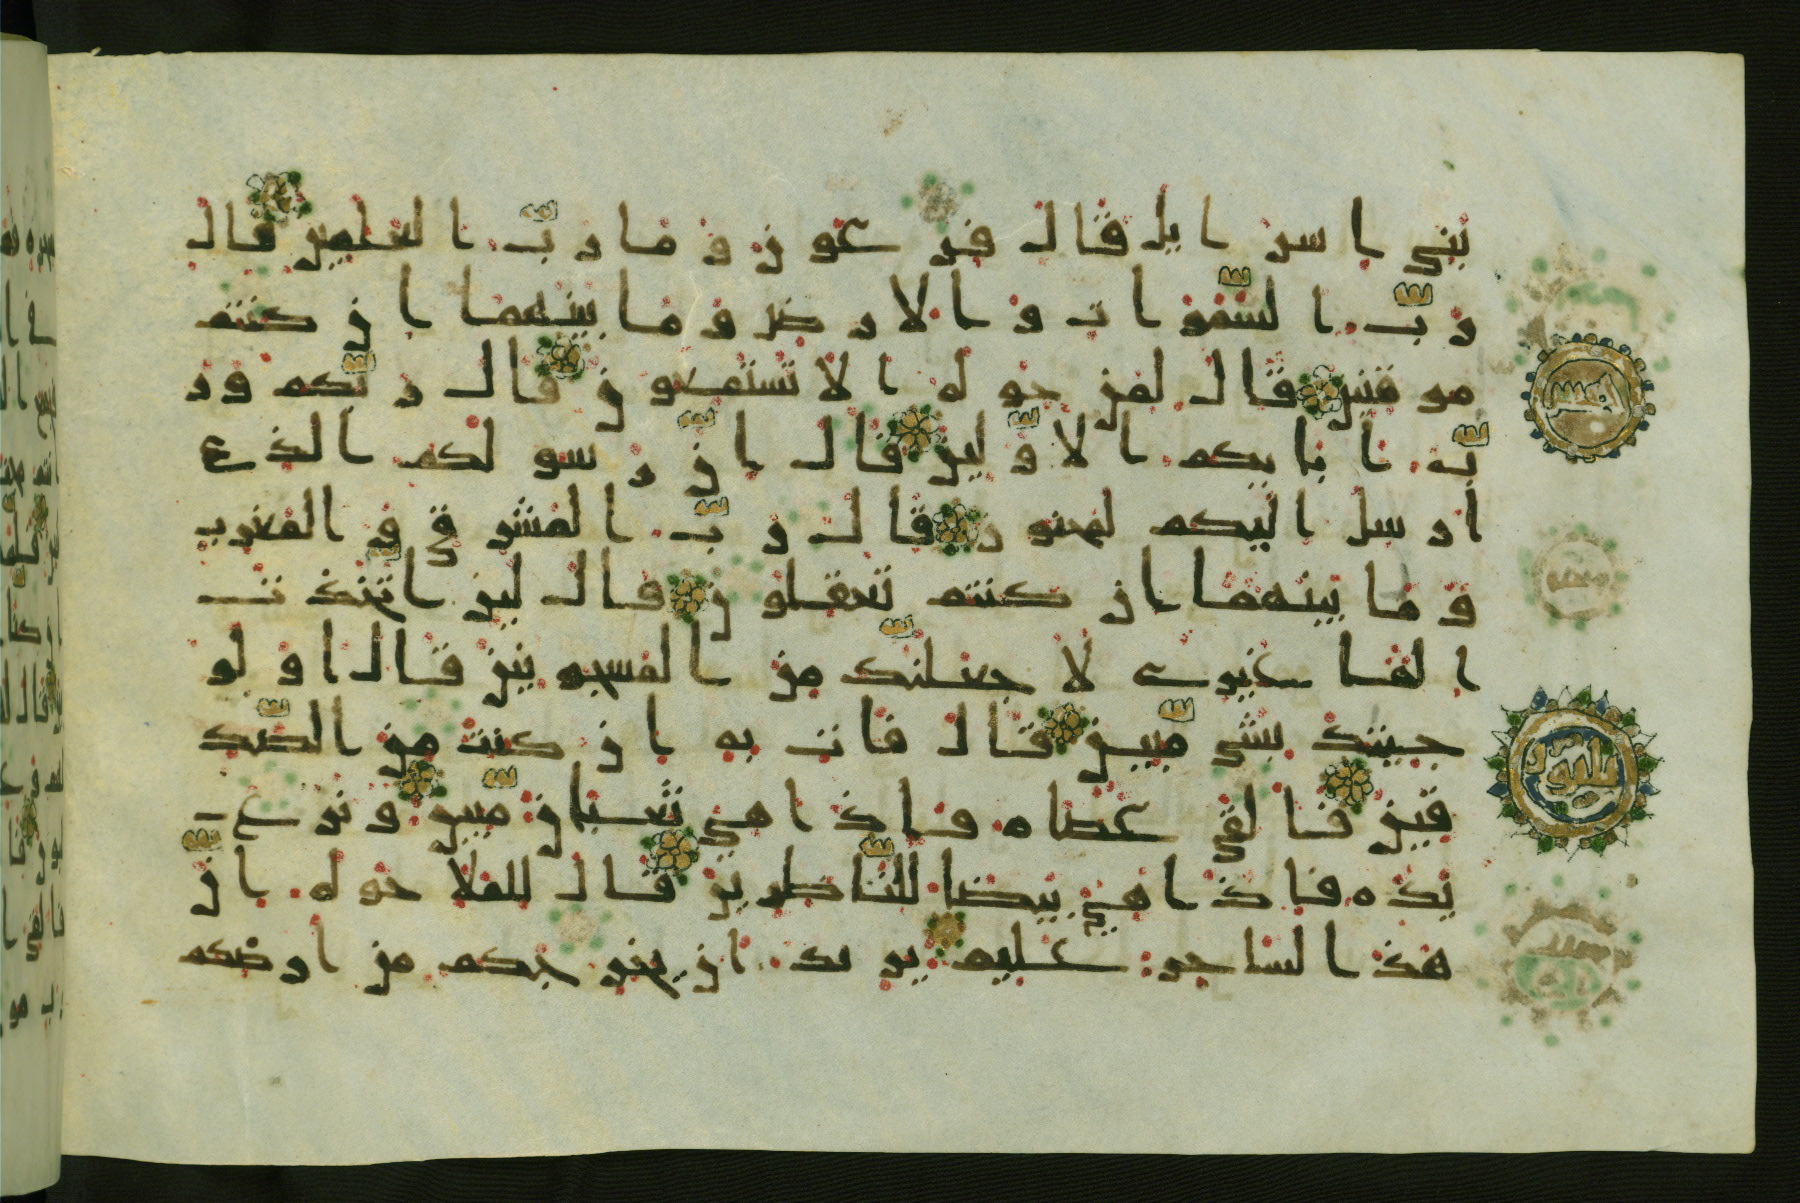 بني اسرايل قال فرعون وما ربّ العلمين قال
ربّ السّموات والارض وما بينهما ان كنتم
موقنين قال لمن حوله الا تستمعون قال ربّكم ور
بّ ابايكم الاوّلين قال انّ رسولكم الذي
ارسل اليكم لمجنون قال ربّ المشرق والمغرب
وما بينهما ان كنتم تعقلون قال لين اتّخذت
الها غيري لاجعلنّك من المسجونين قال اولو
جيتك بشي مّبين قال فات به ان كنت من الصّد
قين فالقى عصاه فاذا هي ثعبان مّبين ونزع
يده فاذا هي بيضا للنّاظرين قال للملا حوله انّ
هذا لساحر عليم يريد ان يخرجكم من ارضكم